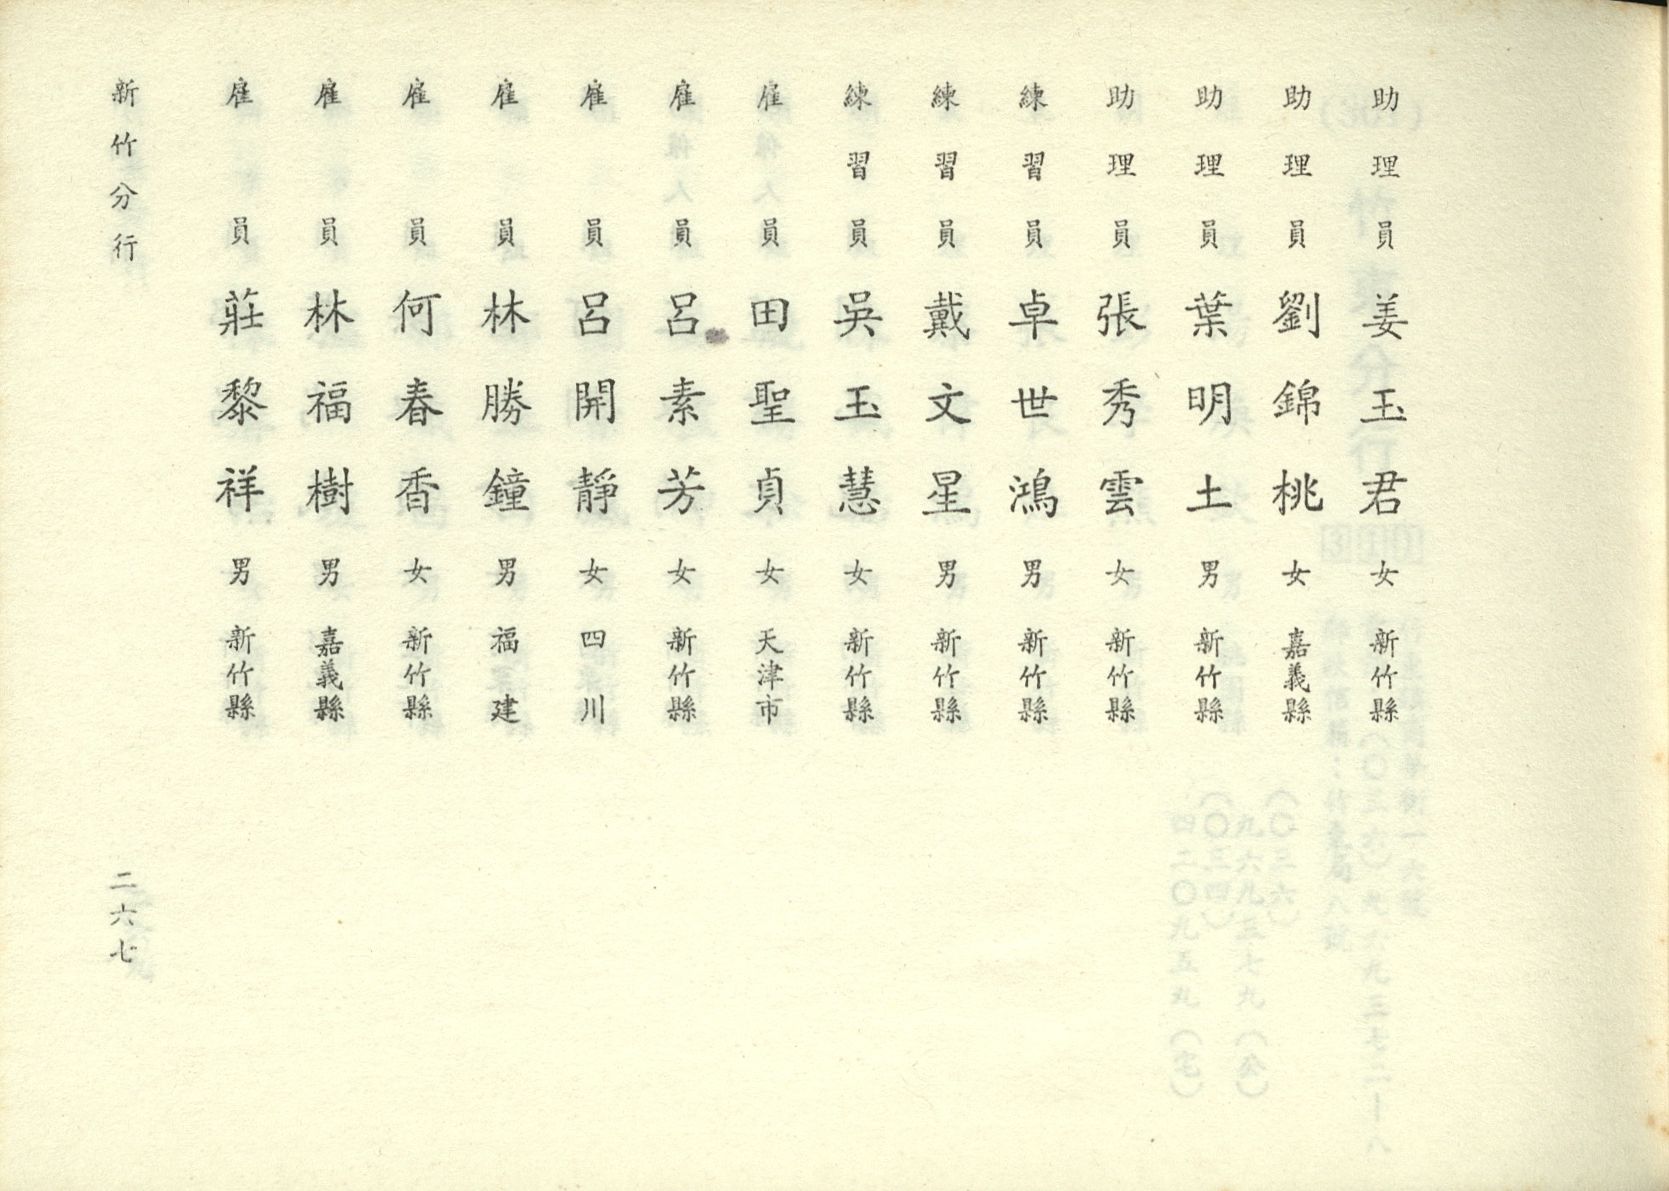 助理員 姜玉君 女 新竹縣
助理員 劉錦桃 女 嘉義縣
助理員 葉明土 男 新竹縣
助理員 張秀雲 女 新竹縣
練習員 卓世鴻 男 新竹縣
練習員 戴文星 男 新竹縣
練習員 吳玉慧 女 新竹縣
雇員 田聖貞 女 天津市
雇員 呂素芳 女 新竹縣
雇員 呂開靜 女 四川
雇員 林勝鐘 男 福建
雇員 何春香 女 新竹縣
雇員 林福樹 男 嘉義縣
雇員 莊黎祥 男 新竹縣
新竹分行 二六七